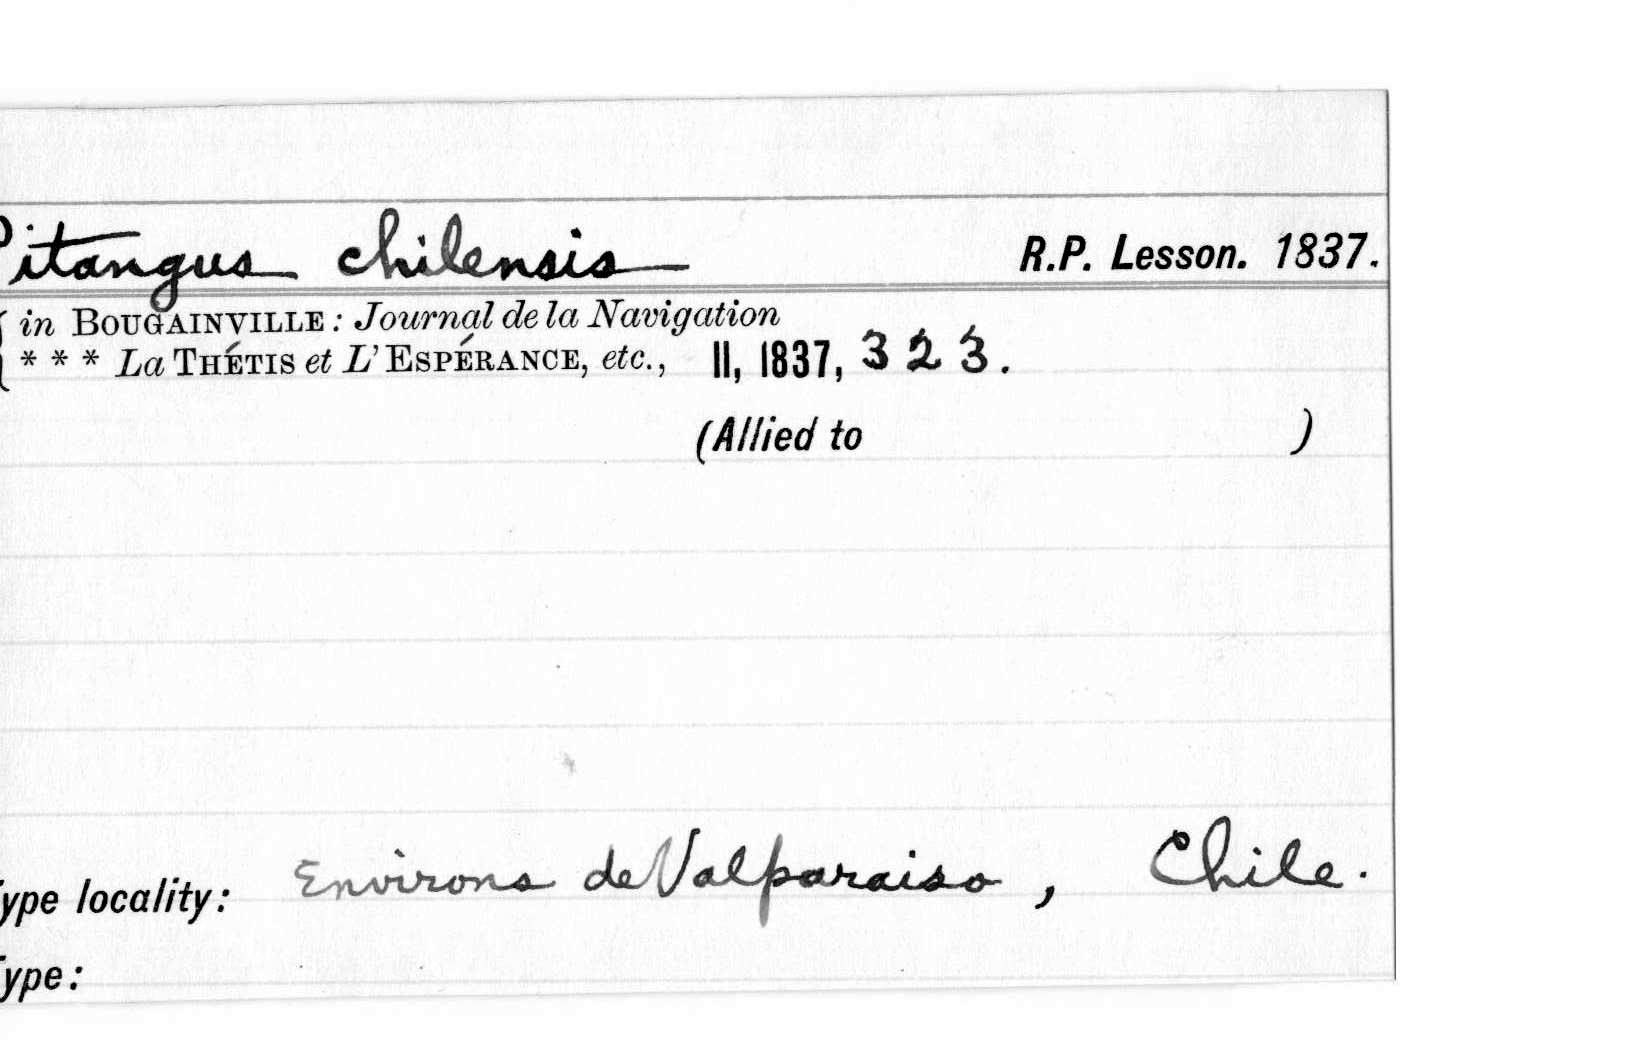 Pitangus chilensis R.P. Lesson. 1837.
in BOUGAINVILLE: Journal de la Navigation
* * * La THÉTIS et L'ESPÉRANCE, etc., II, 1837, 323.
(Allied to )
Type locality: Environs de Valparaiso, Chile.
Type: